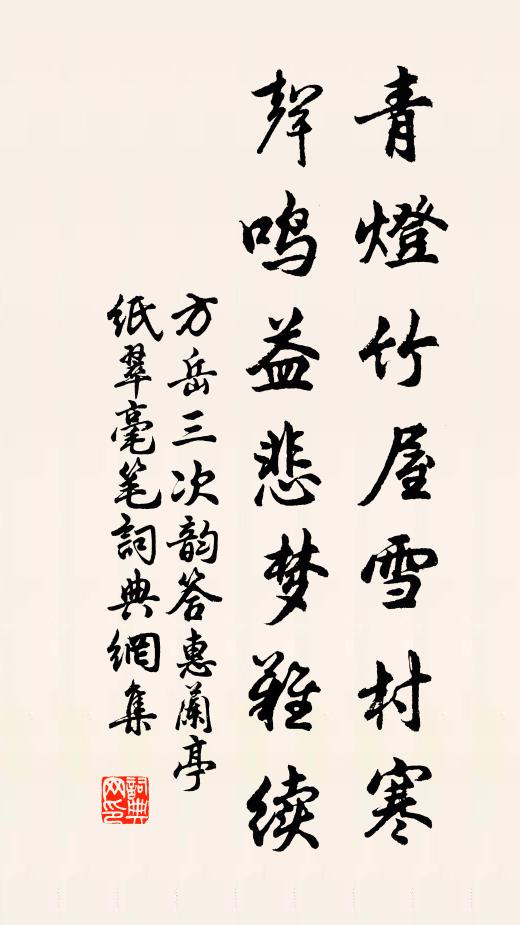 青燈竹屋雪村寒
聲鸣益悲梦難续
方岳三次韵答惠蘭亭
紙翠毫笔詞典網集
詞典网印